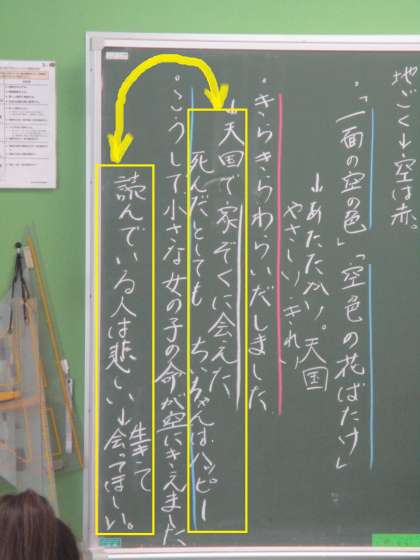 地ごく→空は赤。
・「一面の空の色」「空色の花ばたけ」
→あたたかい。天国
やさしい、きれい
・きらきらわらいだしました
→天国で家ぞくに会えた
死んだとしても ちいちゃんはハッピー
・こうして小さな女の子の命が空にきえました
読んでいる人は悲しい→生きて
会ってほしい。